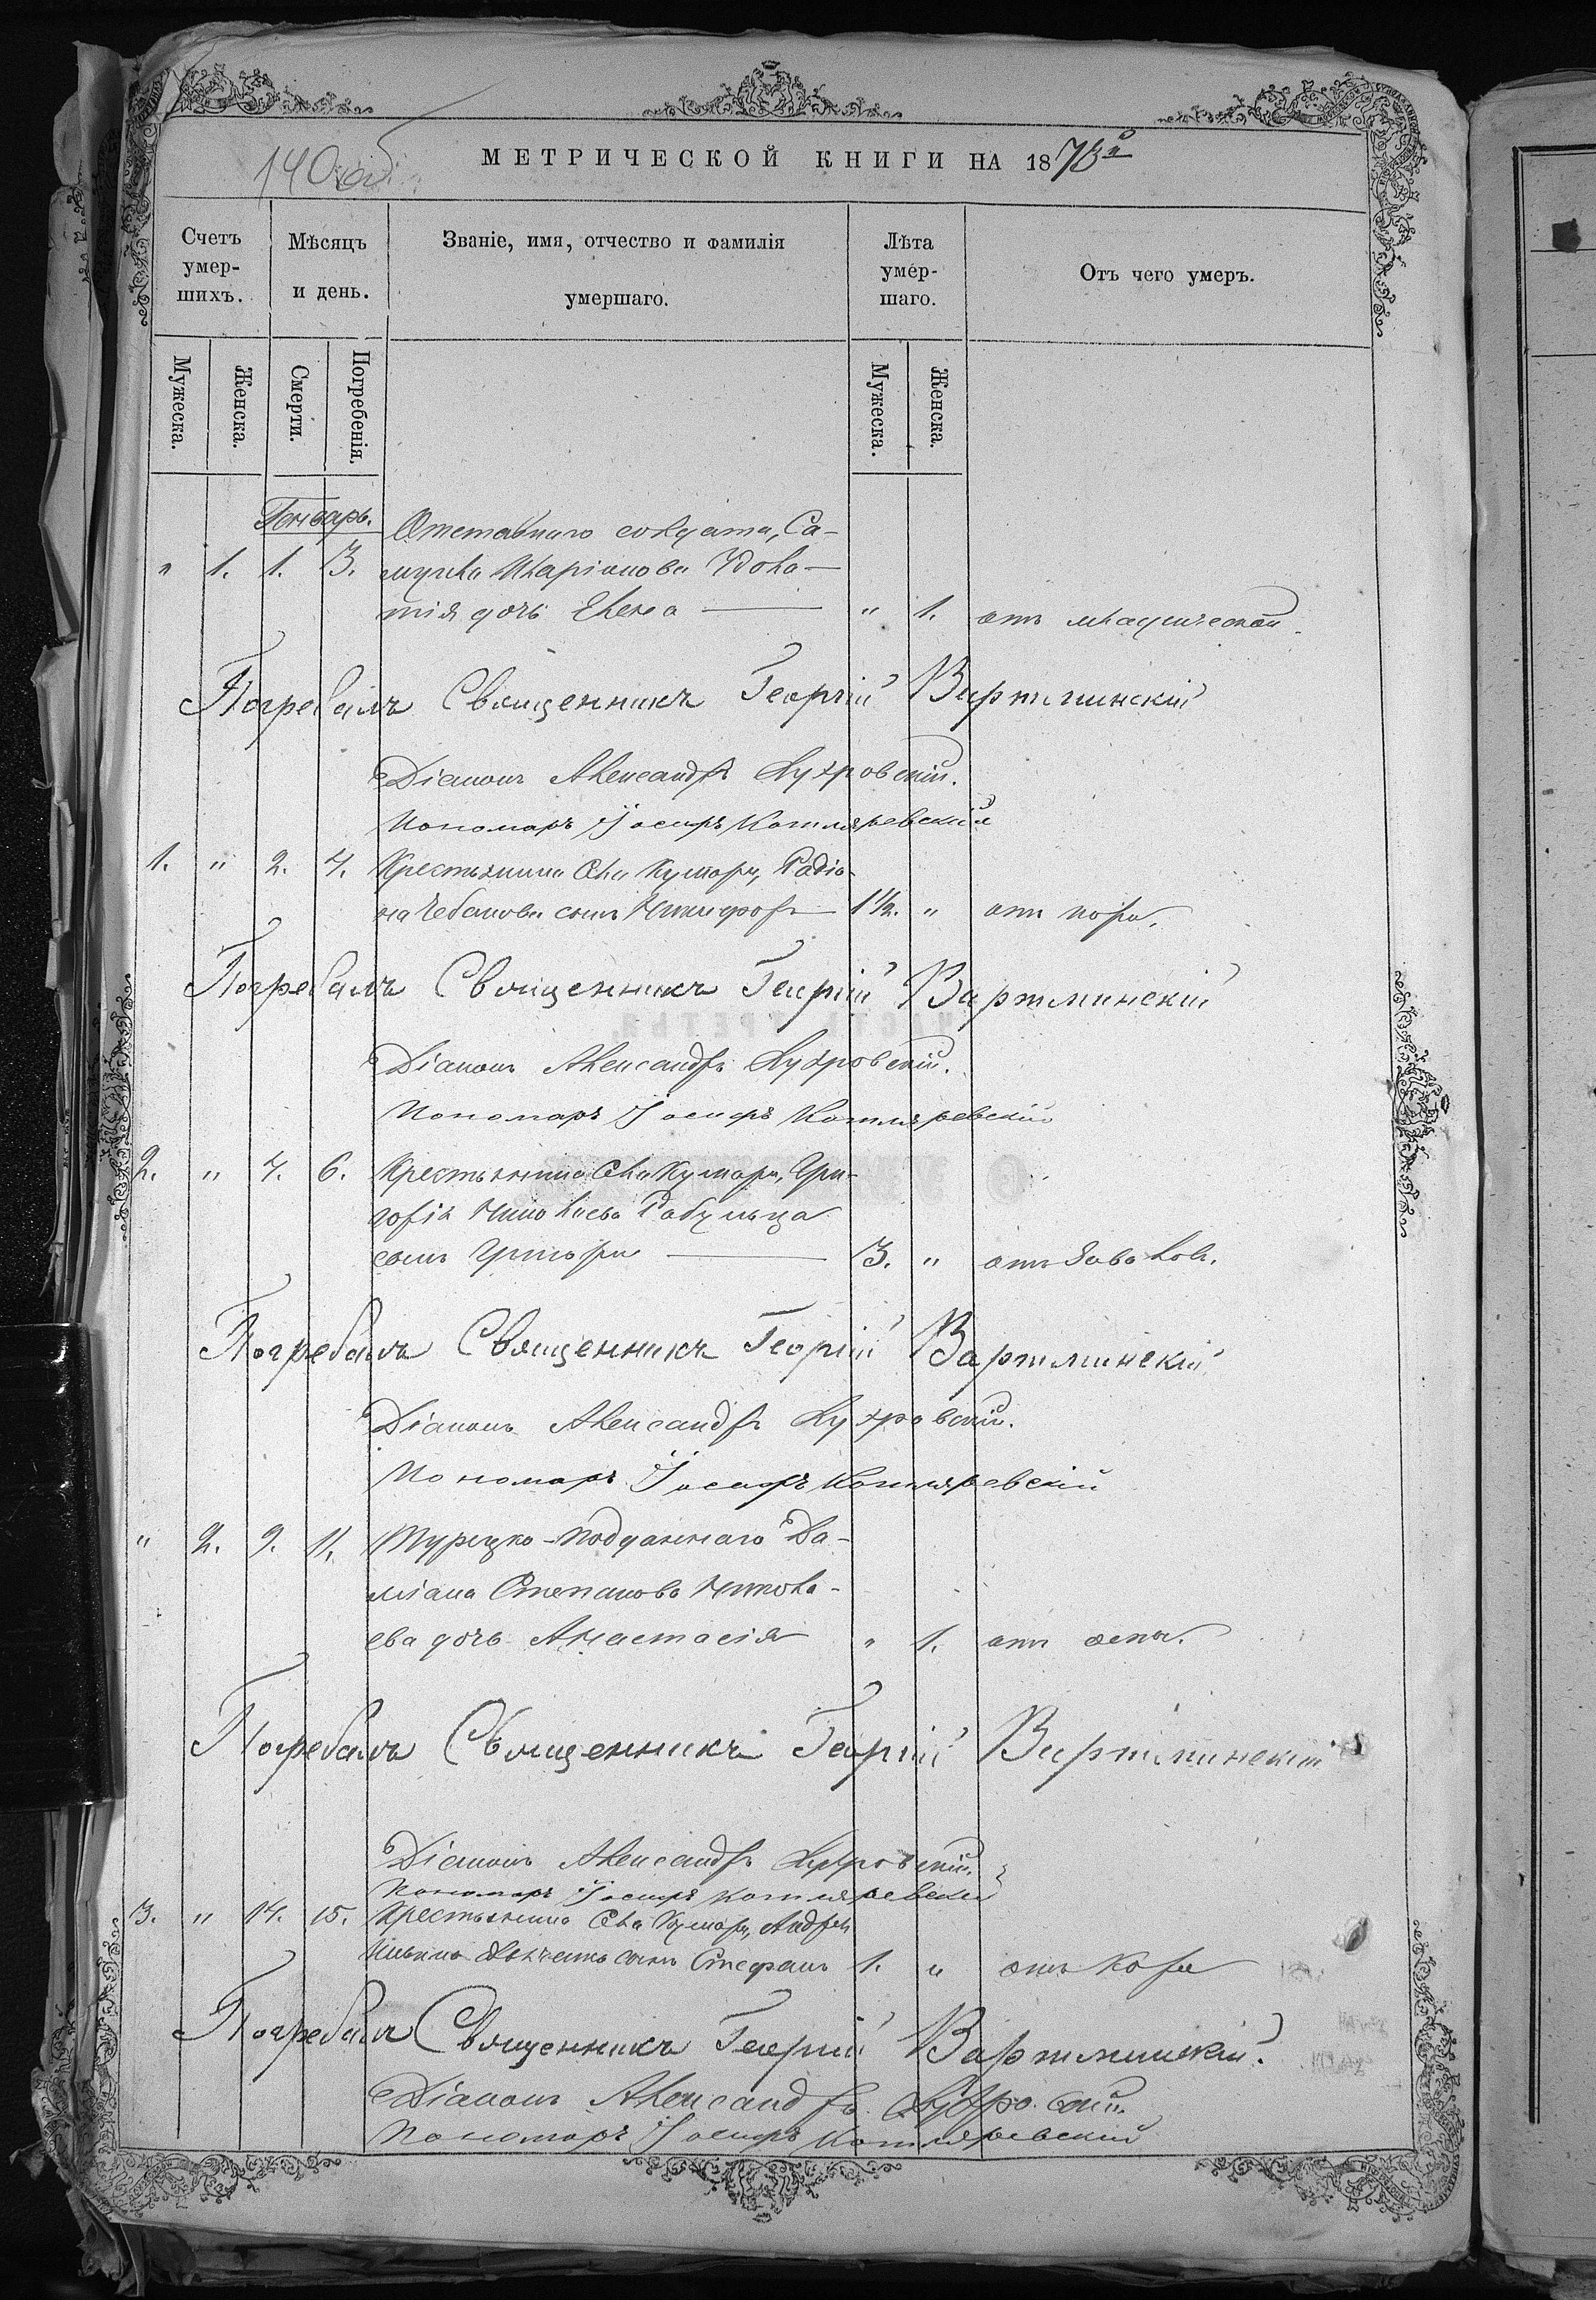 140 об
МЕТРИЧЕСКОЙ КНИГИ НА 1873й
Счетъ умер-шихъ.
Мѣсяцъ и день.
Званіе, имя, отчество и фамилія умершаго.
Лѣта умер-шаго.
Отъ чего умеръ.
Мужеска.
Женска.
Смерти.
Погребенія.
Мужеска.
Женска.
Генварь.
Отставнаго солдата, Са-
" 1. 1. 3. муила Иларіонова
тія дочь Елена — " 1. отъ младенческой
Погребалъ Священникъ Георгій Вартминскій
Діаконъ Александръ
Пономарь Іосифъ Котляревскій
1. " 2. 4. Крестьянина Села Кумари, Радіо-
на Чебанова сынъ Никифоръ — 1½. " отъ кори.
Погребалъ Священникъ Георгій Вартминскій
Діаконъ Александръ
Пономарь Іосифъ Котляревскій
2. " 4. 6. Крестьянина Села Кумари, Гри-
горія Николаева
сынъ Григори — 3. "
Погребалъ Священникъ Георгій Вартминскій
Діаконъ Александръ
Пономарь Іосифъ Котляревскій
" 2. 9. 11. Турецко-подданнаго Да-
міана Степанова Никола-
ева дочь Анастасія " 1. отъ оспы.
Погребалъ Священникъ Георгій Вартминскій
Діаконъ Александръ
Пономарь Іосифъ Котляревскій
3. " 14. 15. Крестьянина Села Кумари, Андрея
сынъ Стефанъ 1. " отъ кори
Погребалъ Священникъ Георгій Вартминскій.
Діаконъ Александръ
Пономарь Іосифъ Котляревскій